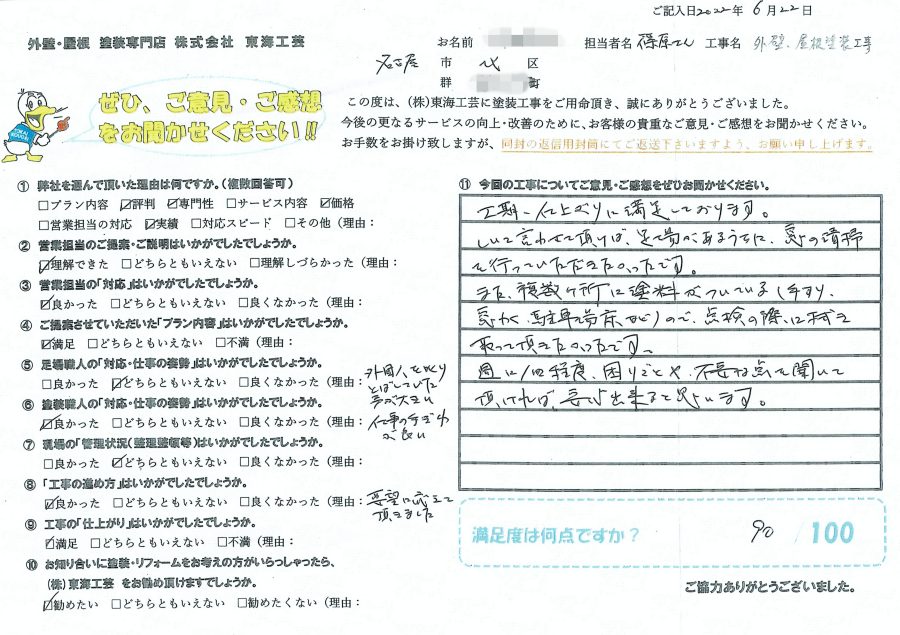 ご記入日2022年 6月22日
外壁・屋根 塗装専門店 株式会社 東海工芸
お名前
担当者名 篠原さん 工事名 外壁、屋根塗装工事
名古屋 市 区
群 町
ぜひ、ご意見・ご感想
をお聞かせください!!
TOKAI KOUGEI
この度は、(株)東海工芸に塗装工事をご用命頂き、誠にありがとうございました。
今後の更なるサービスの向上・改善のために、お客様の貴重なご意見・ご感想をお聞かせください。
お手数をお掛け致しますが、同封の返信用封筒にてご返送下さいますよう、お願い申し上げます。
① 弊社を選んで頂いた理由は何ですか。(複数回答可)
□プラン内容 ☑評判 ☑専門性 □サービス内容 ☑価格
□営業担当の対応 ☑実績 □対応スピード □その他(理由:
② 営業担当のご提案・ご説明はいかがでしたでしょうか。
☑理解できた □どちらともいえない □理解しづらかった(理由:
③ 営業担当の「対応」はいかがでしたでしょうか。
☑良かった □どちらともいえない □良くなかった(理由:
④ ご提案させていただいた「プラン内容」はいかがでしたでしょうか。
☑満足 □どちらともいえない □不満(理由:
⑤ 足場職人の「対応・仕事の姿勢」はいかがでしたでしょうか。
□良かった ☑どちらともいえない □良くなかった(理由:
外国人を叱り
とばしていた
声が大きい
⑥ 塗装職人の「対応・仕事の姿勢」はいかがでしたでしょうか。
☑良かった □どちらともいえない □良くなかった(理由:
仕事の手ぎわ
が良い
⑦ 現場の「管理状況(整理整頓等)はいかがでしたでしょうか。
□良かった ☑どちらともいえない □良くなかった(理由:
⑧ 「工事の進め方」はいかがでしたでしょうか。
☑良かった □どちらともいえない □良くなかった(理由:
要望に応えて
頂きました
⑨ 工事の「仕上がり」はいかがでしたでしょうか。
☑満足 □どちらともいえない □不満(理由:
⑩ お知り合いに塗装・リフォームをお考えの方がいらっしゃったら、
(株)東海工芸 をお勧め頂けますでしょうか。
☑勧めたい □どちらともいえない □勧めたくない(理由:
⑪ 今回の工事についてご意見・ご感想をぜひお聞かせください。
工期、仕上がりに満足しております。
しいて言わせて頂けば、足場があるうちに、窓の清掃
を行っていただきたかったです。
また、複数ヶ所に塗料がついている(手すり、
窓わく、駐車場床など)ので、点検の際に拭き
取って頂きたかったです。
週に1回程度、困りごとや、不要な点を聞いて
頂ければ、喜び出来ると思います。
満足度は何点ですか? 90 / 100
ご協力ありがとうございました。